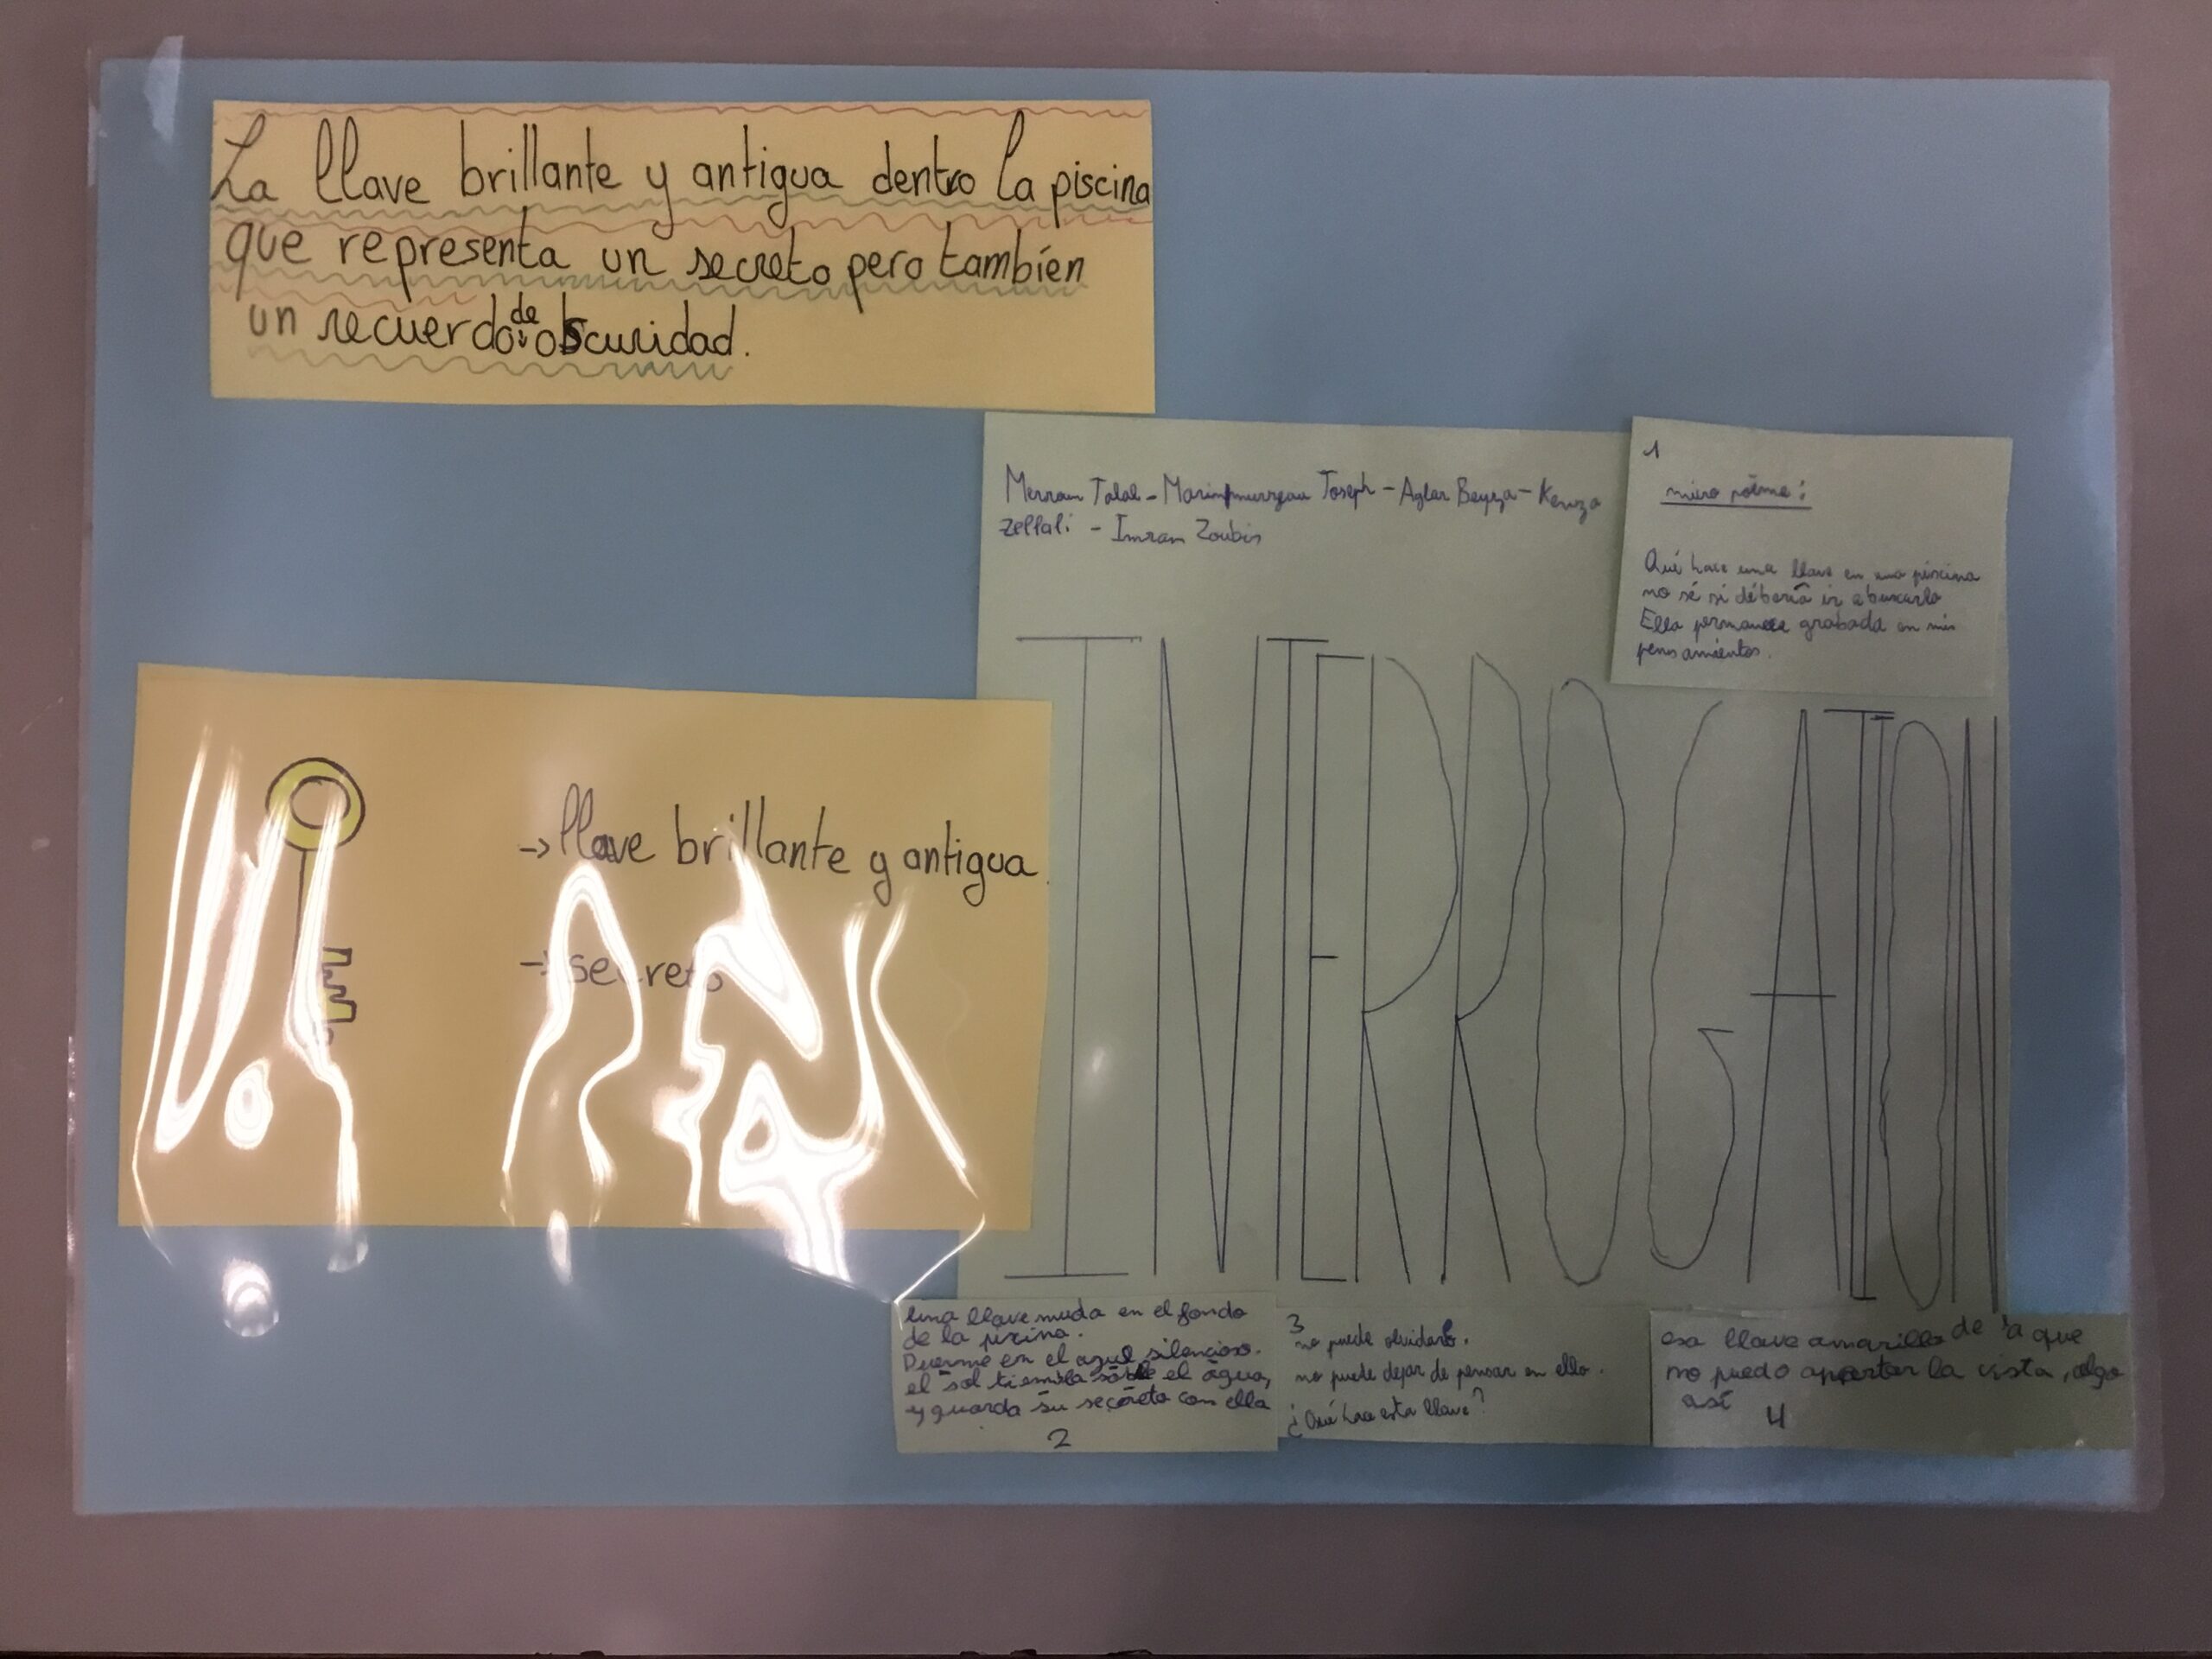 La llave brillante y antigua dentro la piscina
que representa un secreto pero también
un recuerdo de obscuridad.
Talal - Joseph - Aglar Beyza - Kenza
Zellali - Imran Zoubir
1
micro poème :
Qué hace una llave en una piscina
no sé si débería ir a buscarla
Ella permanece grabada en mis
pensamientos.
INTERROGATION
→ llave brillante y antigua.
→ secreto
Una llave muda en el fondo
de la piscina.
Duerme en el azul silencioso.
el sol tiembla sobre el agua,
y guarda su secreto con ella
2
3
no puede olvidarlo.
no puede dejar de pensar en ello.
¿Qué hace esta llave?
esa llave amarilla de la que
no puedo apartar la vista, algo
así
4